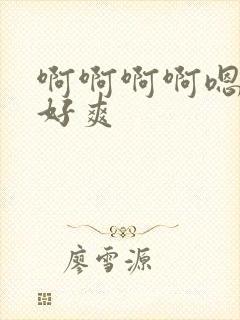 啊啊啊啊嗯
好爽
廖雪源